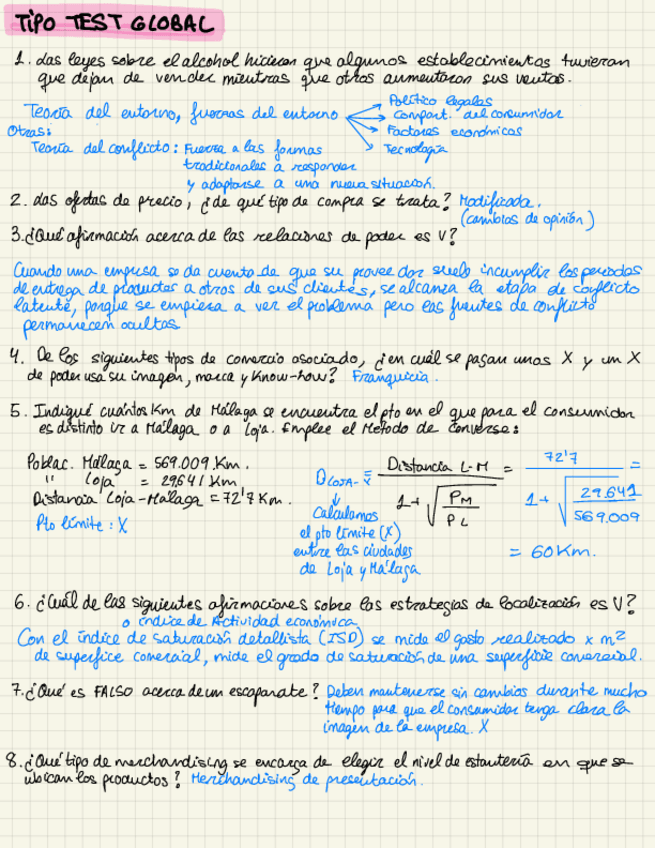 TIPO TEST GLOBAL
1. Las leyes sobre el alcohol hicieron que algunos establecimientos tuvieran
que dejan de vender mientras que otros aumentaron sus ventas.
Teoría del entorno, fuerzas del entorno
Político legales
Comport. del consumidor
Factores económicos
Tecnología
Otras:
Teoría del conflicto: Fuerza a las formas
tradicionales a responder
y adaptarse a una nueva situación.
2. Las ofertas de precio, ¿de qué tipo de compra se trata? Modificada.
(cambios de opinión)
3. ¿Qué afirmación acerca de las relaciones de poder es V?
Cuando una empresa se da cuenta de que su proveedor suele incumplir los periodos
de entrega de productos a otros de sus clientes, se alcanza la etapa de conflicto
latente, porque se empieza a ver el problema pero las fuentes de conflicto
permanecen ocultas
4. De los siguientes tipos de comercio asociado, ¿en cuál se pagan unos X y un X
de poder usa su imagen, marca y Know-how? Franquicia.
5. Indique cuántos Km de Málaga se encuentra el pto en el que para el consumidor
es distinto ir a Málaga o a Loja. Emplee el Método de Converse:
Poblac. Málaga = 569.009 Km.
" Loja = 29.641 Km
Distancia Loja-Málaga = 72'7 Km.
Pto límite: X
D LOJA-X = Distancia L-M / 1+√(PM / PL) = 72'7 / 1+√(29.641 / 569.009) =
= 60 Km.
↓
Calculamos
el pto límite (X)
entre las ciudades
de Loja y Málaga
6. ¿Cuál de las siguientes afirmaciones sobre las estrategias de localización es V?
o índice de Actividad económica
Con el índice de saturación detallista (ISD) se mide el gasto realizado x m²
de superfice comercial, mide el grado de saturación de una superficie comercial.
7. ¿Qué es FALSO acerca de un escaparate? Deben mantenerse sin cambios durante mucho
tiempo para que el consumidor tenga clara la
imagen de la empresa. X
8. ¿Qué tipo de merchandising se encarga de elegir el nivel de estantería en que se
ubican los productos? Merchandising de presentación.